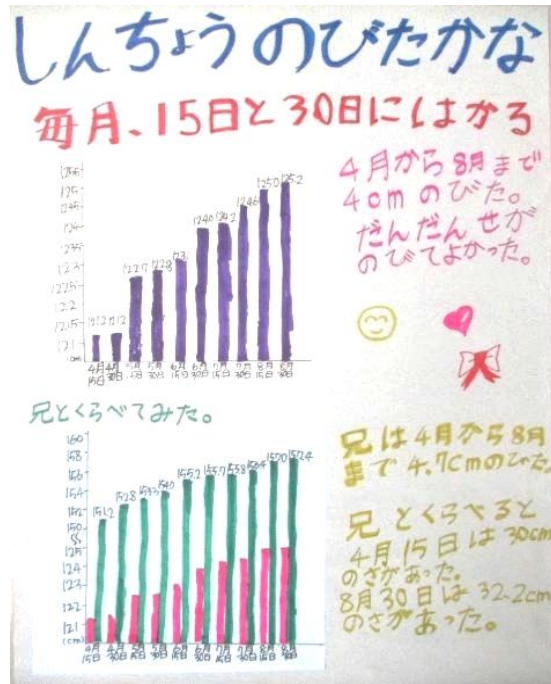 しんちょうのびたかな
毎月、15日と30日にはかる
4月から8月まで
4cmのびた。
だんだんせが
のびてよかった。
125.5
125
124.5
124
123.5
123
122.5
122
121.5
121
cm
121.2 121.2 122.7 122.8 123.1 124.0 124.2 124.6 125.0 125.2
4月15日 4月30日 5月15日 5月30日 6月15日 6月30日 7月15日 7月30日 8月15日 8月30日
兄とくらべてみた。
160
158
156
154
152
150
125
124
123
122
121
(cm)
151.2 152.8 153.3 154.0 155.2 155.7 155.8 156.4 157.0 157.4
4月15日 4月30日 5月15日 5月30日 6月15日 6月30日 7月15日 7月30日 8月15日 8月30日
兄は4月から8月
まで4.7cmのびた。
兄とくらべると
4月15日は30cm
のさがあった。
8月30日は32.2cm
のさがあった。